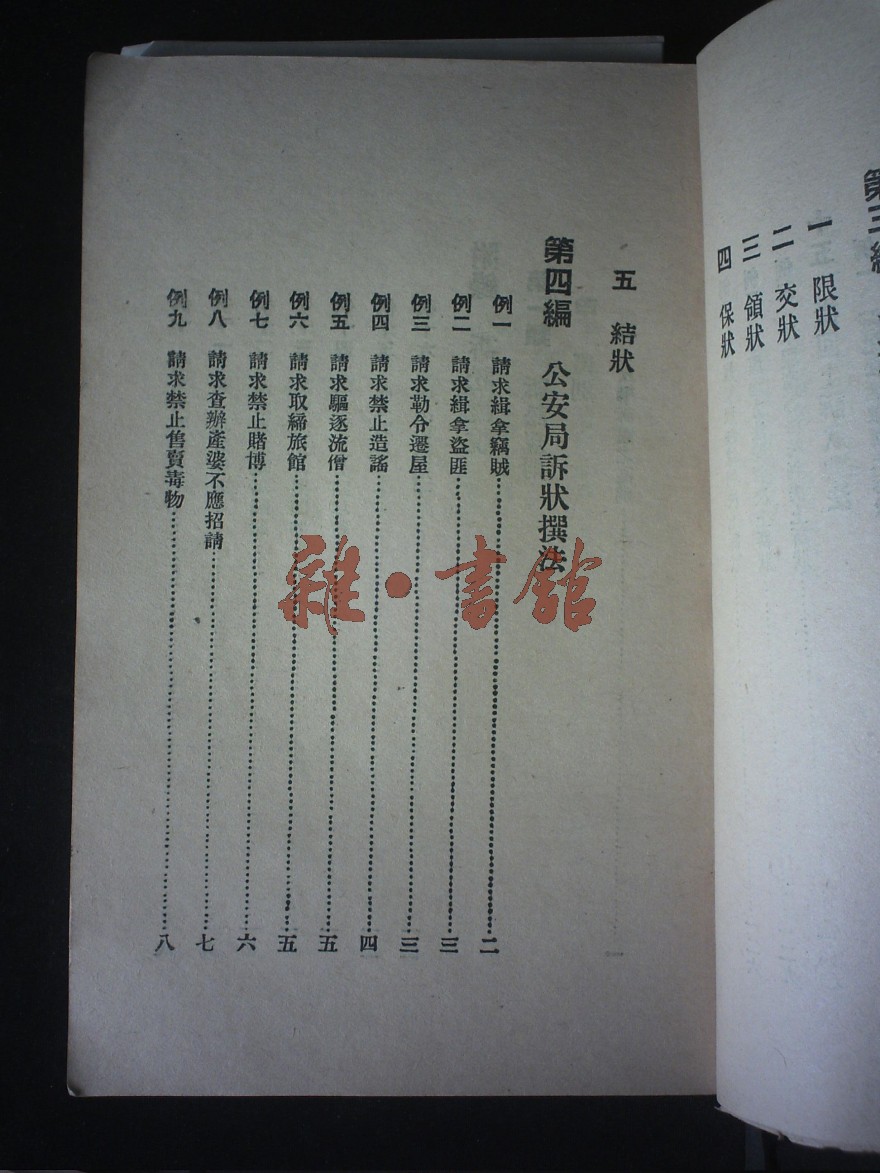 第三編
一 限狀
二 交狀
三 領狀
四 保狀
五 結狀
第四編 公安局訴狀撰法
例一 請求緝拿竊賊……二
例二 請求緝拿盜匪……三
例三 請求勒令遷屋……三
例四 請求禁止造謠……四
例五 請求驅逐流僧……五
例六 請求取締旅館……五
例七 請求禁止賭博……六
例八 請求查辦產婆不應招請……七
例九 請求禁止售賣毒物……八
雜·書館